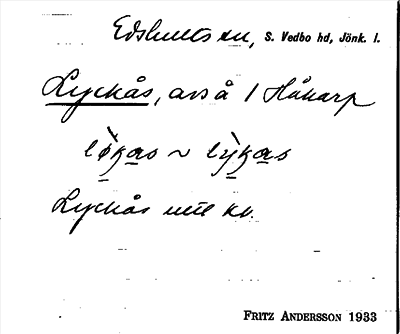 Edshults sn, S. Vedbo hd, Jönk. l.
Lyckås, avs å 1 Håkarp
lø̀kas ~ lỳkas
Lyckås utt. kv.
FRITZ ANDERSSON 1933